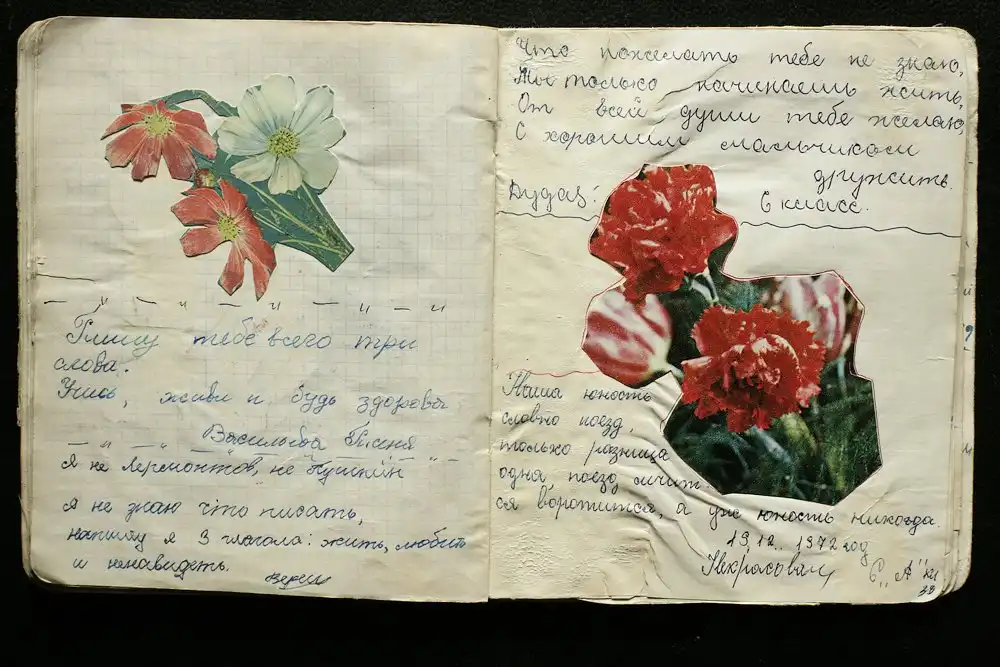 Пишу тебе всего три
слова:
Учись, живи и будь здорова
Васильева
Я не Лермонтов, не Пушкин
Я не знаю что писать,
напишу я 3 глагола: жить, любить
и ненавидеть.
Что пожелать тебе не знаю,
Ты только начинаешь жить,
От всей души тебе желаю,
С хорошим мальчиком
дружить.
6 класс.
Наша юность
словно поезд,
только разница
одна, поезд мчит-
ся воротится, а уж юность никогда.
19.12. 1972 год
6 "А" кл